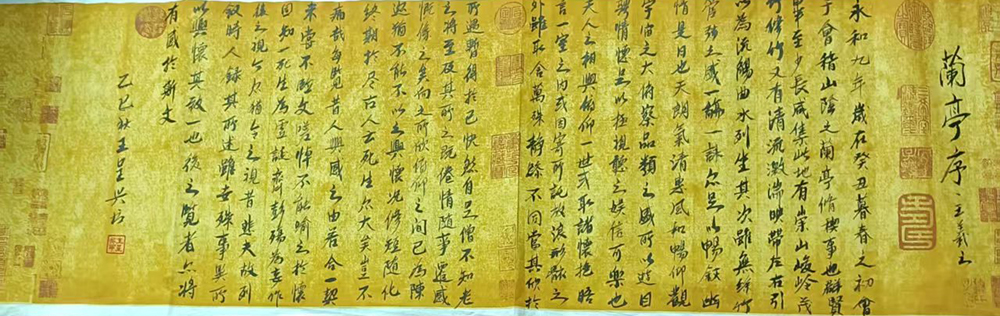 蘭亭序
王羲之
永和九年歲在癸丑暮春之初會
于會稽山陰之蘭亭脩稧事也群賢
畢至少長咸集此地有崇山峻嶺茂
林修竹又有清流激湍映帶左右引
以為流觴曲水列坐其次雖無絲竹
管弦之盛一觴一詠亦足以暢敘幽
情是日也天朗氣清惠風和暢仰觀
宇宙之大俯察品類之盛所以遊目
騁懷足以極視聽之娛信可樂也
夫人之相與俯仰一世或取諸懷抱晤
言一室之內或因寄所託放浪形骸之
外雖取舍萬殊靜躁不同當其欣於
所遇暫得於己快然自足曾不知老
之將至及其所之既倦情隨事遷感
慨係之矣向之所欣俯仰之間已為陳
迹猶不能不以之興懷況修短隨化
終期於盡古人云死生亦大矣豈不
痛哉每覽昔人興感之由若合一契
未嘗不臨文嗟悼不能喻之於懷
固知一死生為虛誕齊彭殤為妄作
後之視今亦猶今之視昔悲夫故列
敘時人錄其所述雖世殊事異所
以興懷其致一也後之覽者亦將
有感於斯文
乙巳秋王呈兴书